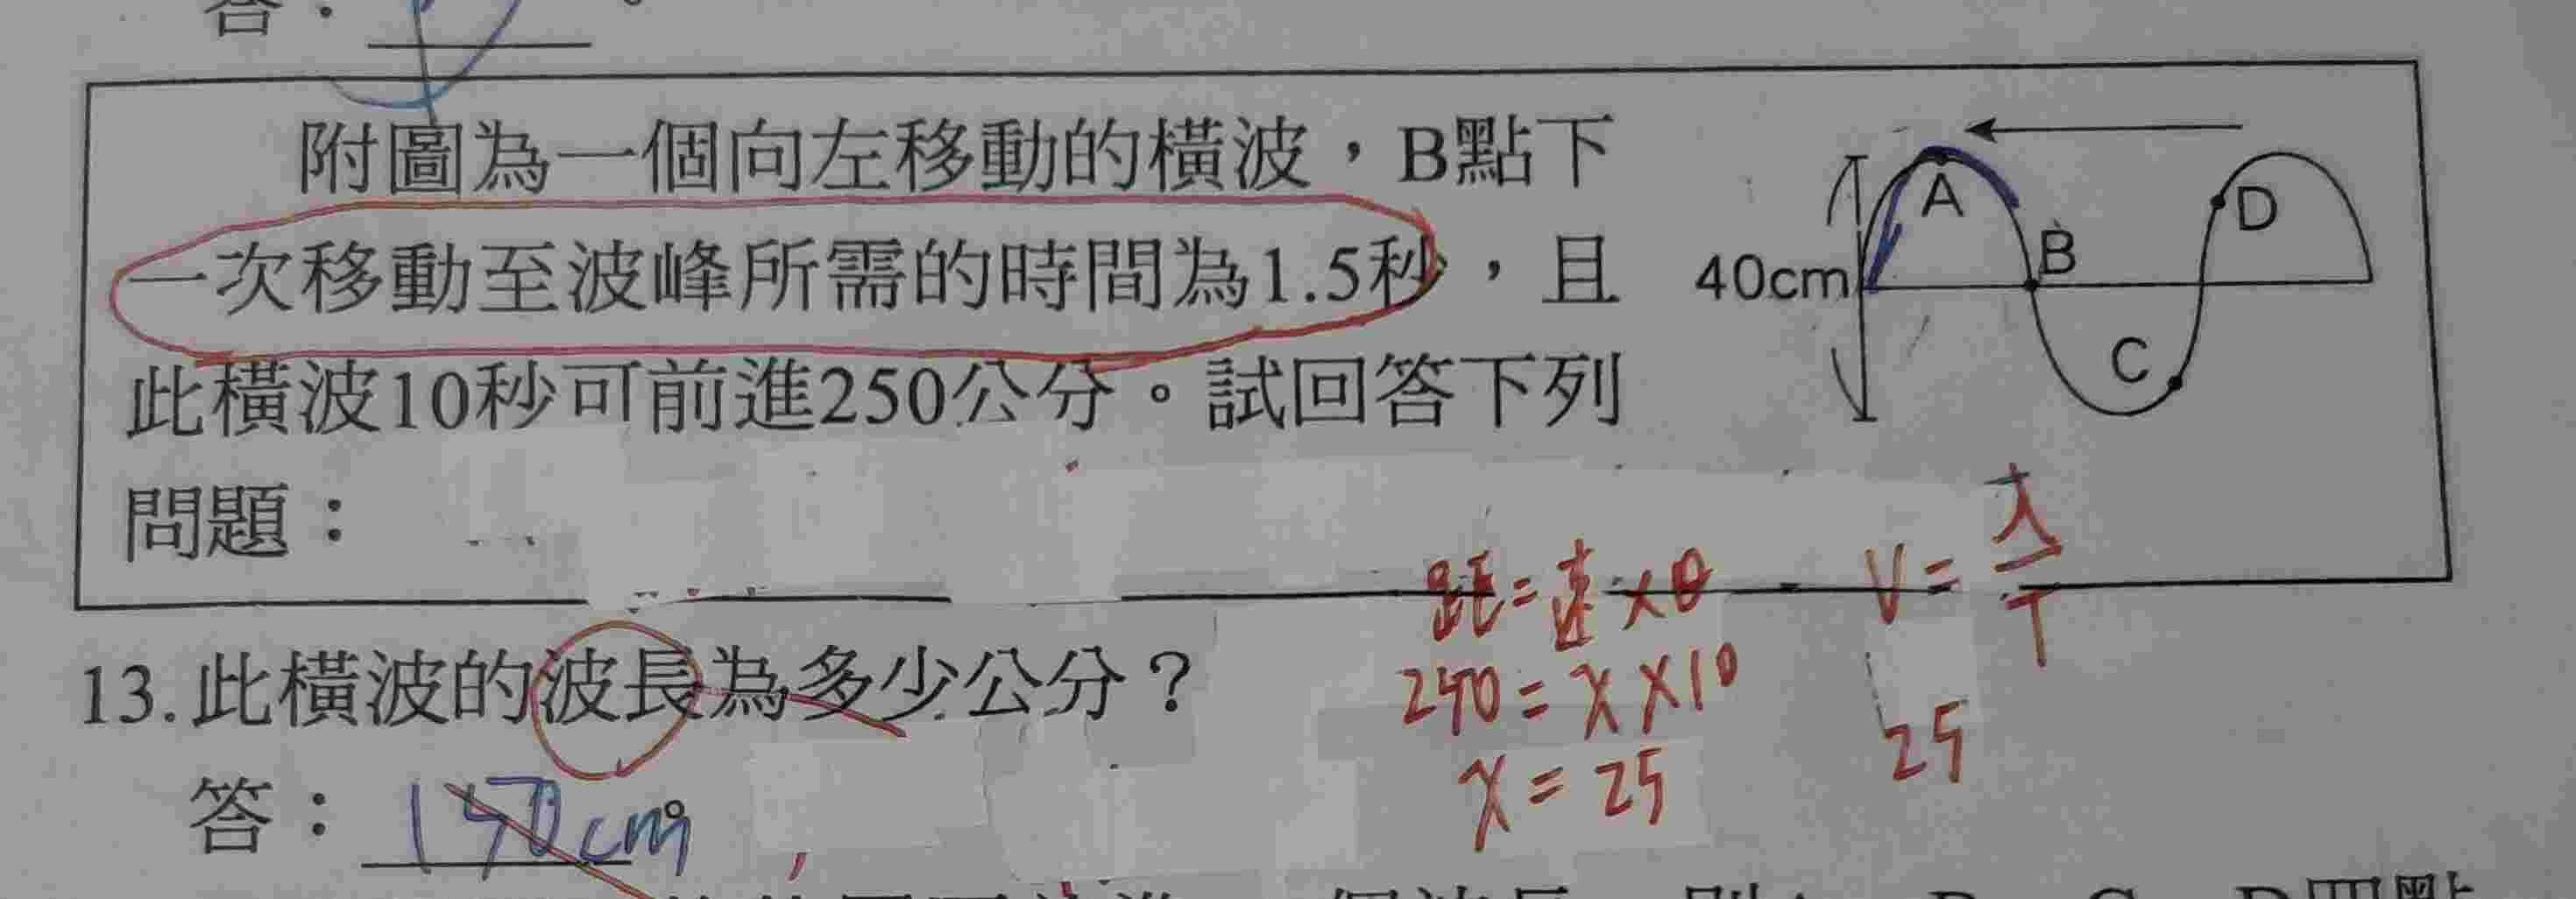 答：
附圖為一個向左移動的橫波，B點下
一次移動至波峰所需的時間為1.5秒，且
此橫波10秒可前進250公分。試回答下列
問題：
A
B
C
D
40cm
距=速×θ
250=x×10
x=25
V=λ/T
25
13.此橫波的波長為多少公分？
答：150cm。